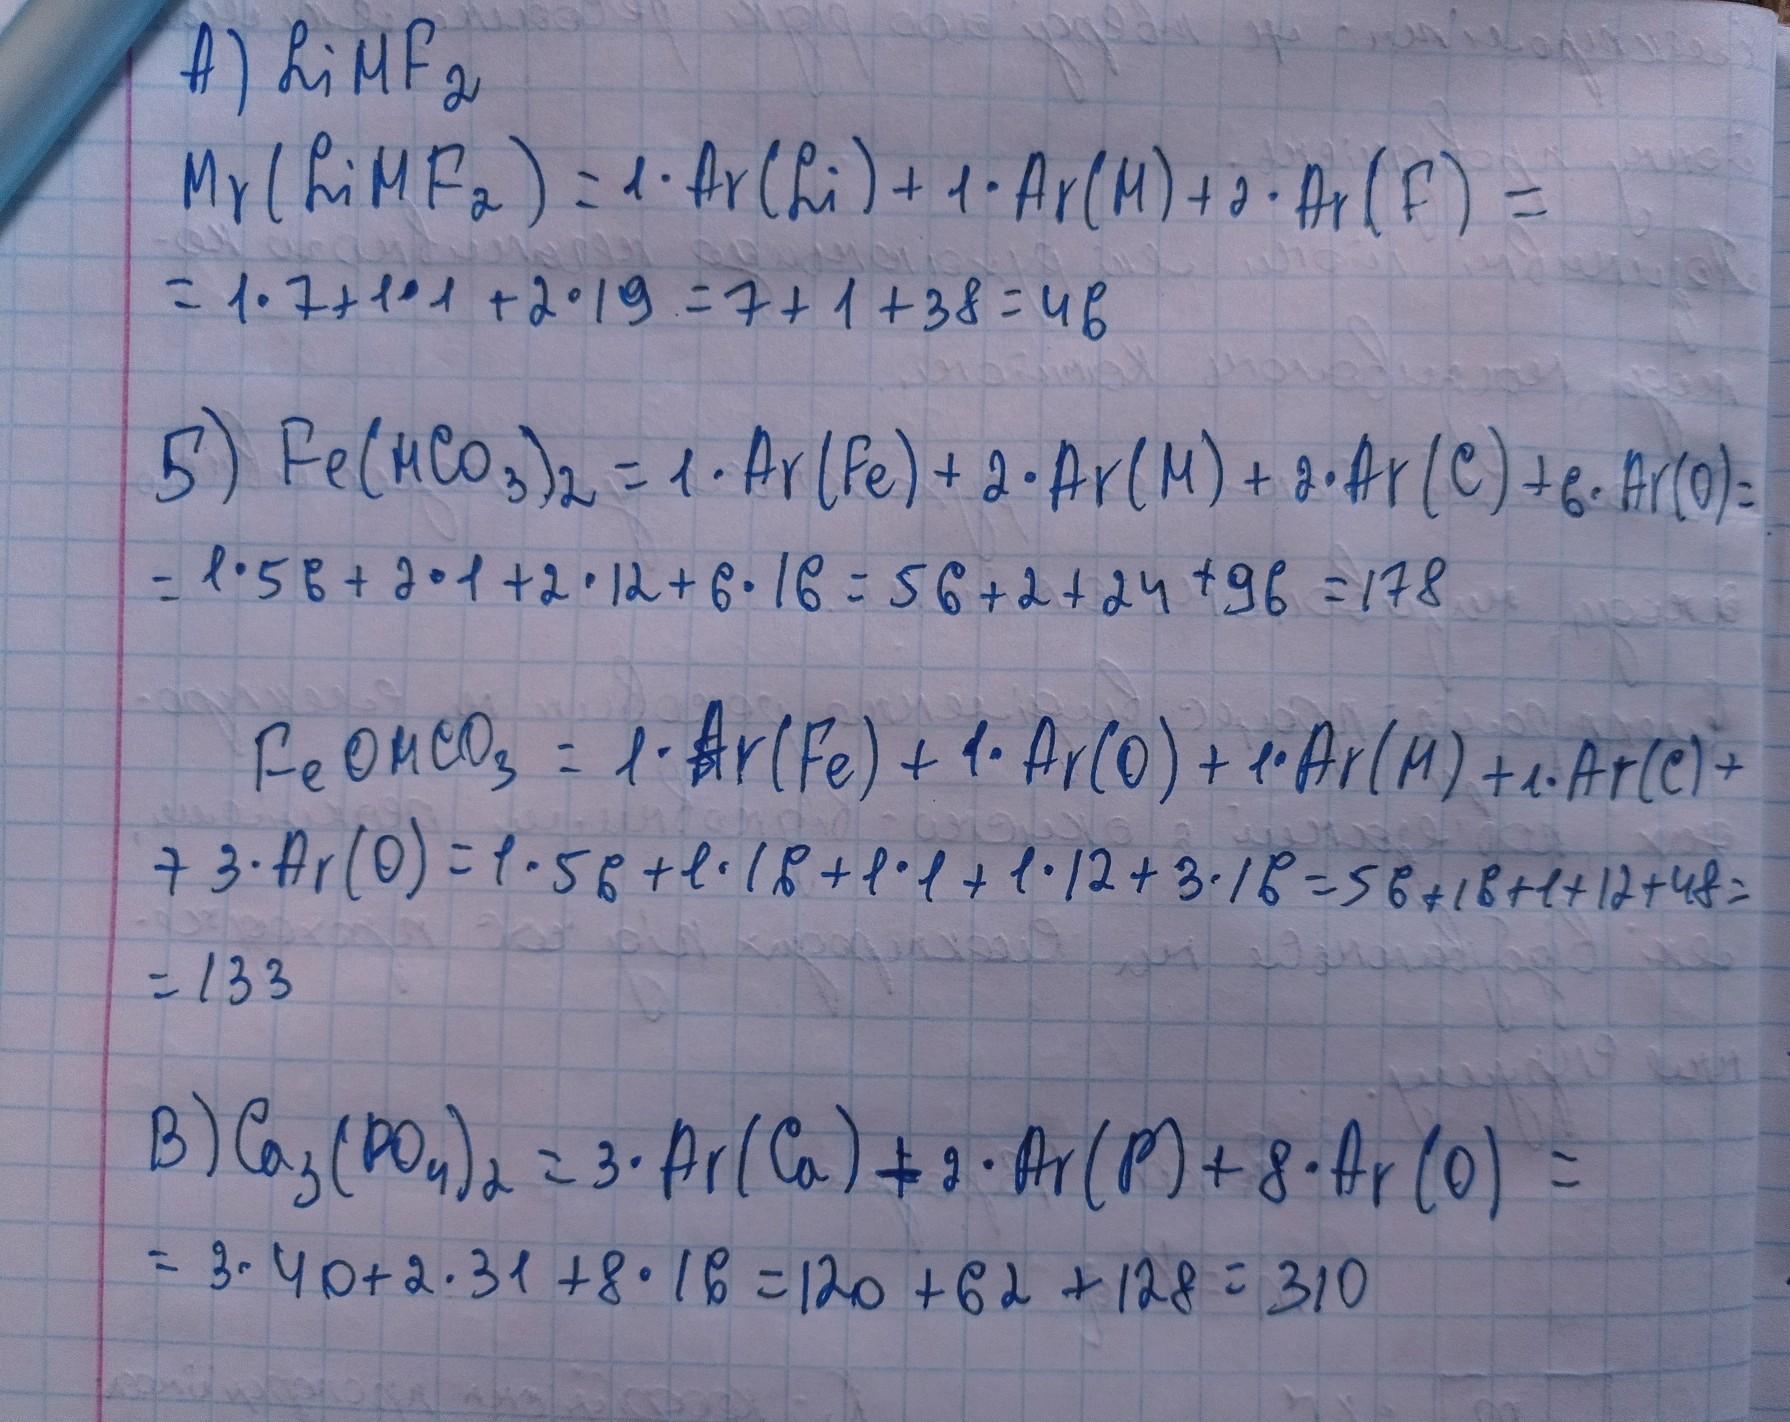 А) LiHF₂
Mr(LiHF₂) = 1·Ar(Li) + 1·Ar(H) + 2·Ar(F) =
= 1·7+1·1+2·19 = 7+1+38=46
Б) Fe(HCO₃)₂ = 1·Ar(Fe) + 2·Ar(H) + 2·Ar(C) + 6·Ar(O) =
= 1·56+2·1+2·12+6·16 = 56+2+24+96 = 178
FeOHCO₃ = 1·Ar(Fe) + 1·Ar(O) + 1·Ar(H) + 1·Ar(C) +
+ 3·Ar(O) = 1·56+1·16+1·1+1·12+3·16 = 56+16+1+12+48 =
= 133
В) Ca₃(PO₄)₂ = 3·Ar(Ca) + 2·Ar(P) + 8·Ar(O) =
= 3·40+2·31+8·16 = 120+62+128 = 310